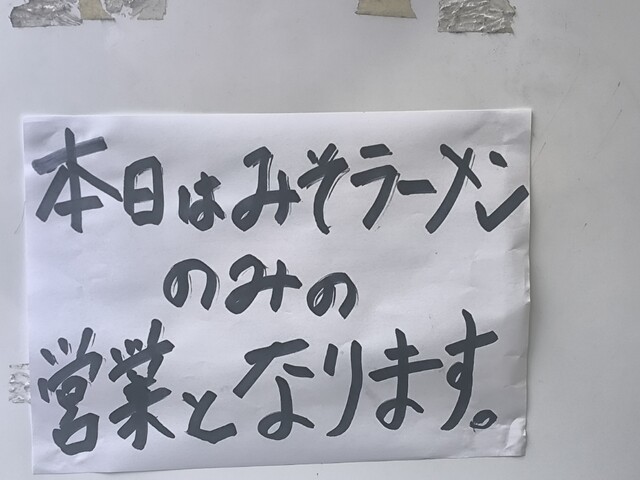 本日はみそラーメン
のみの
営業となります。